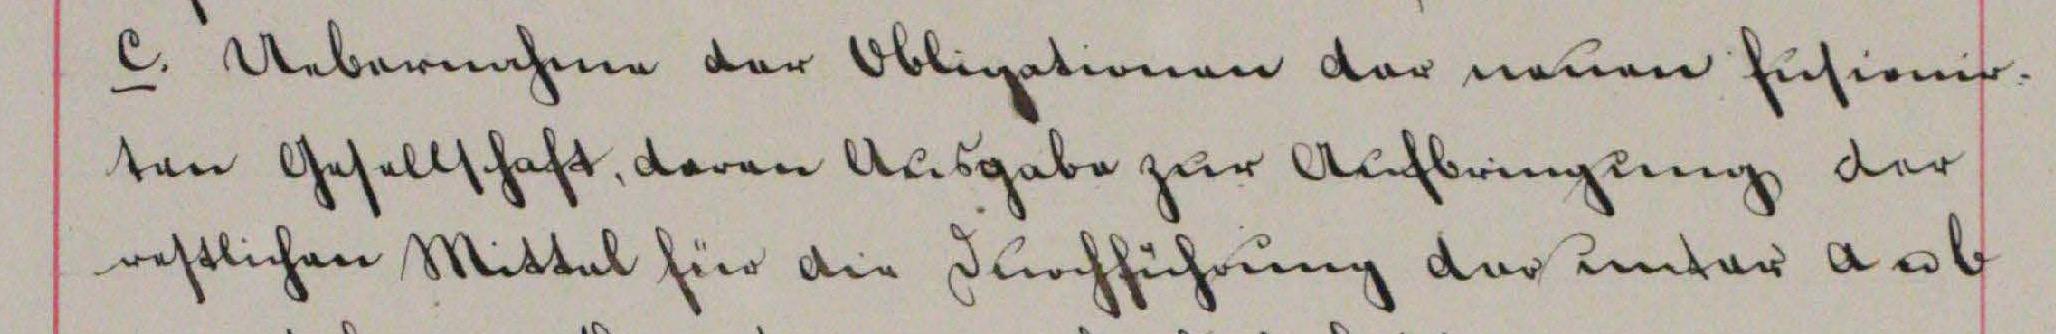 C. Uebernahme der Obligationen der neuen fusionir-
ten Gesellschaft, deren Ausgabe zur Aufbringung der
restlichen Mittel für die Durchführung der unter a u b